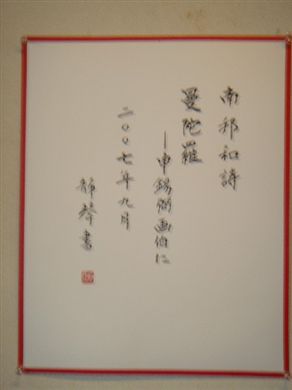 南邦和詩
曼陀羅
―申錫弼画伯に
二〇〇七年九月
書